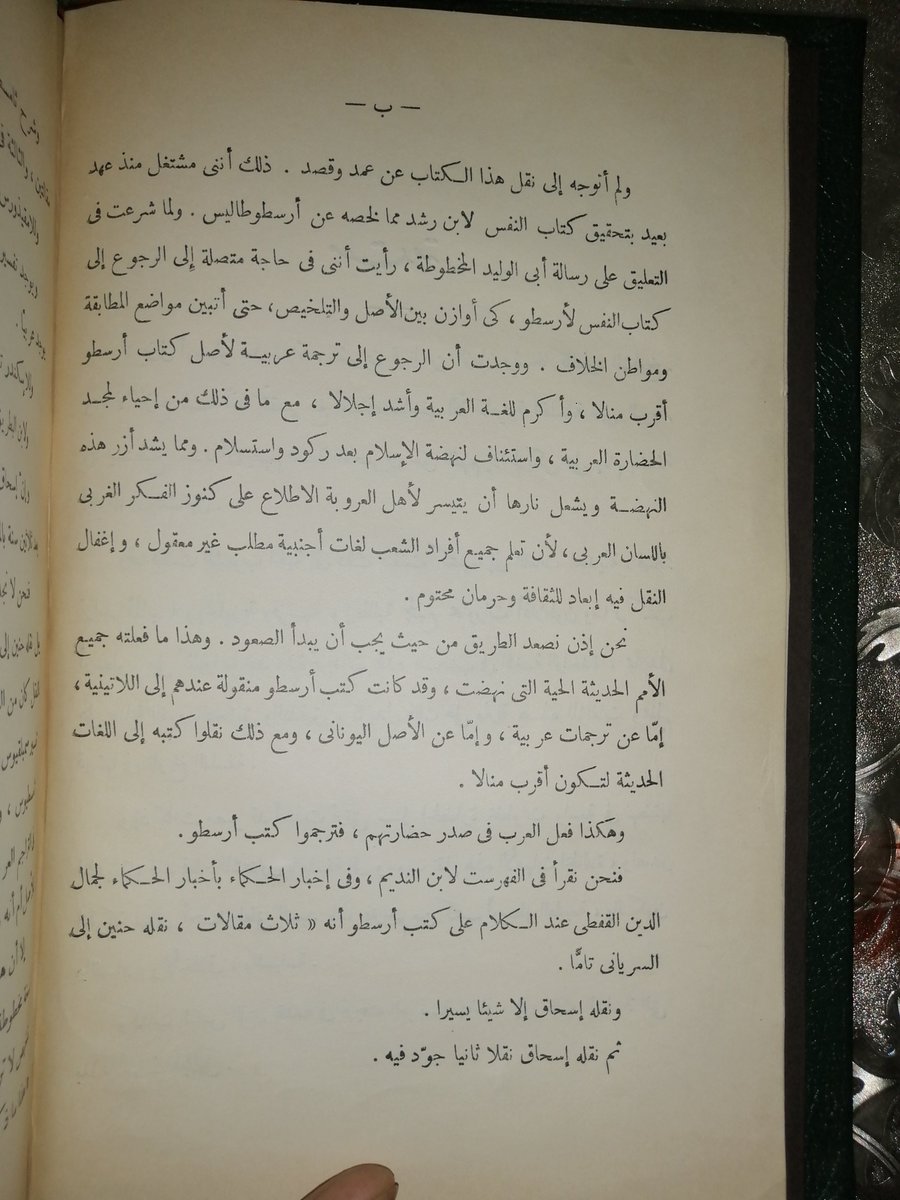 — ب —
ولم أتوجه إلى نقل هذا الكتاب عن عمد وقصد . ذلك أننى مشتغل منذ عهد
بعيد بتحقيق كتاب النفس لابن رشد مما لخصه عن أرسطوطاليس . ولما شرعت فى
التعليق على رسالة أبى الوليد المخطوطة ، رأيت أننى فى حاجة متصلة إلى الرجوع إلى
كتاب النفس لأرسطو ، كى أوازن بين الأصل والتلخيص، حتى أتبين مواضع المطابقة
ومواطن الخلاف . ووجدت أن الرجوع إلى ترجمة عربية لأصل كتاب أرسطو
أقرب منالا ، وأكرم للغة العربية وأشد إجلالا ، مع ما فى ذلك من إحياء لمجد
الحضارة العربية ، واستئناف لنهضة الإسلام بعد ركود واستسلام . ومما يشد أزر هذه
النهضة ويشعل نارها أن يتيسر لأهل العروبة الاطلاع على كنوز الفكر الغربى
باللسان العربى ، لأن تعلم جميع أفراد الشعب لغات أجنبية مطلب غير معقول ، وإغفال
النقل فيه إبعاد للثقافة وحرمان محتوم .
نحن إذن نصعد الطريق من حيث يجب أن يبدأ الصعود . وهذا ما فعلته جميع
الأمم الحديثة الحية التى نهضت ، وقد كانت كتب أرسطو منقولة عندهم إلى اللاتينية ،
إمّا عن ترجمات عربية ، وإمّا عن الأصل اليونانى ، ومع ذلك نقلوا كتبه إلى اللغات
الحديثة لتكون أقرب منالا .
وهكذا فعل العرب فى صدر حضارتهم ، فترجموا كتب أرسطو .
فنحن نقرأ فى الفهرست لابن النديم ، وفى إخبار الحكماء بأخبار الحكماء لجمال
الدين القفطى عند الكلام على كتب أرسطو أنه « ثلاث مقالات ، نقله حنين إلى
السريانى تامًّا .
ونقله إسحاق إلا شيئا يسيرا .
ثم نقله إسحاق نقلا ثانيا جوّد فيه .